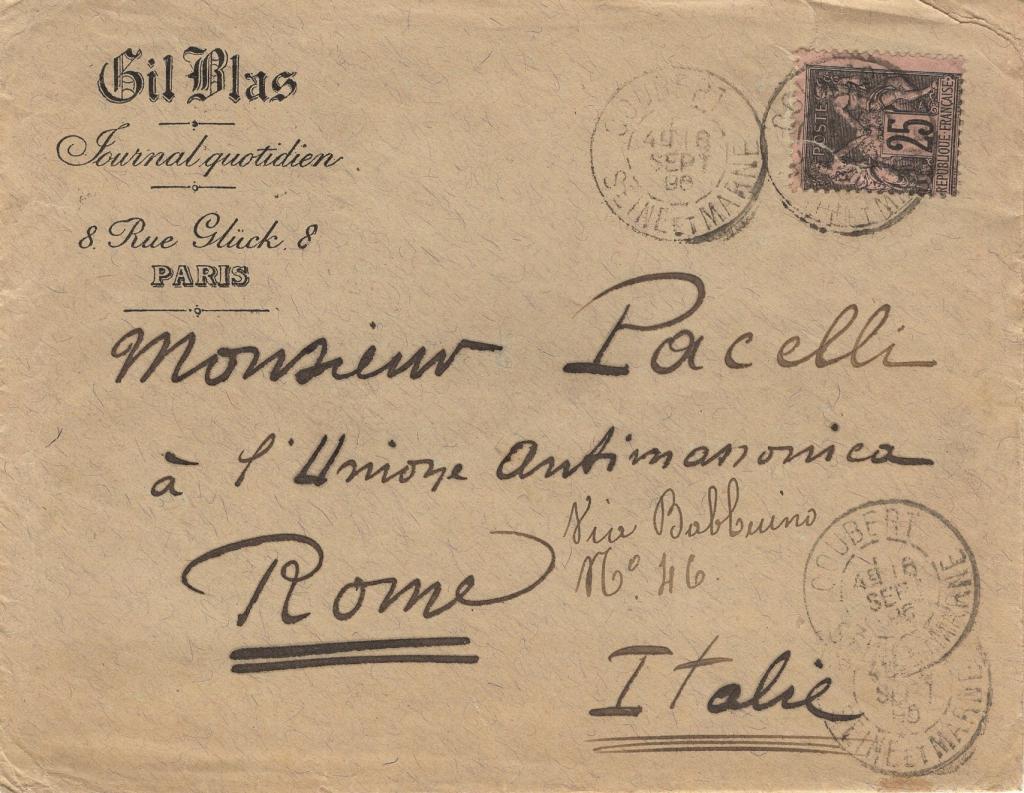 Gil Blas
Journal quotidien
8. Rue Glück. 8
PARIS
COUBERT
SEPT
96
SEINE ET MARNE
POSTES
25
REPUBLIQUE FRANÇAISE
Monsieur Pacelli
à l'Unione Antimassonica
Via Babbuino
Nº. 46.
Rome
Italie
COUBERT
SEPT
96
SEINE ET MARNE
SEPT
96
SEINE ET MARNE